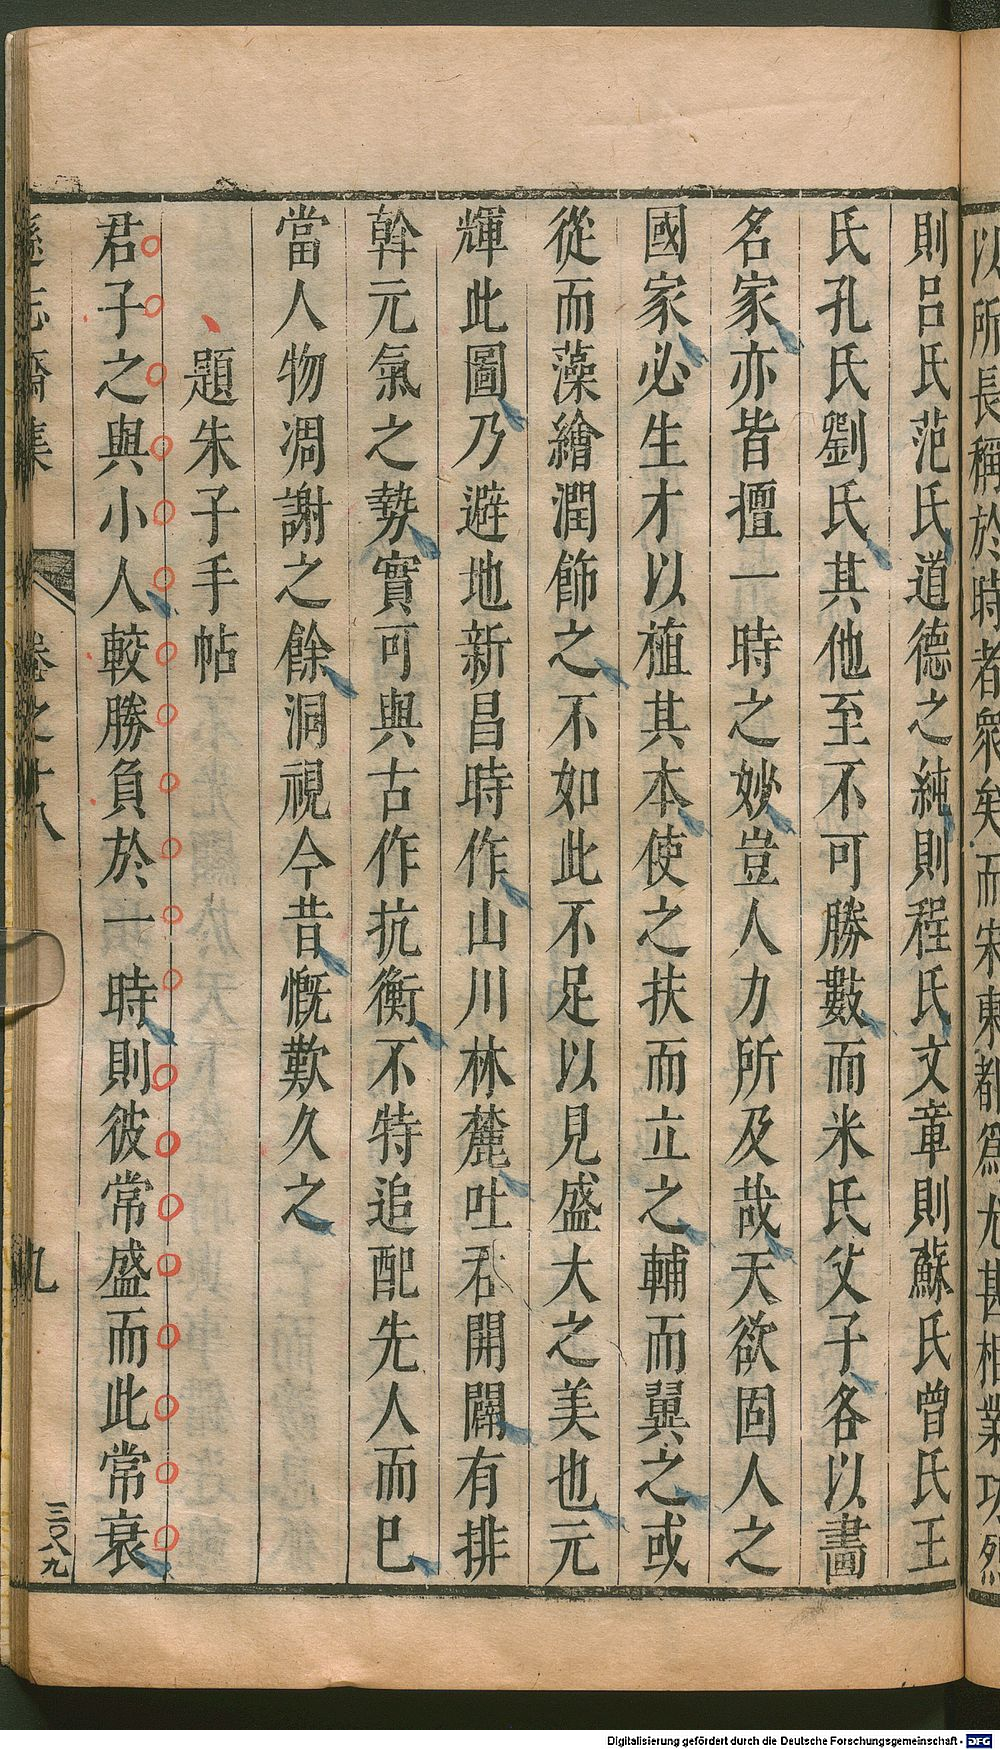 以所長稱於時者衆矣而宋東都爲尤甚相業功烈
則呂氏范氏道德之純則程氏文章則蘇氏曾氏王
氏孔氏劉氏其他至不可勝數而米氏父子各以畫
名家亦皆擅一時之妙豈人力所及哉天欲固人之
國家必生才以植其本使之扶而立之輔而翼之或
從而藻繪潤飾之不如此不足以見盛大之美也元
輝此圖乃避地新昌時作山川林麓吐吞開闢有排
斡元氣之勢實可與古作抗衡不特追配先人而巳
當人物凋謝之餘洞視今昔慨歎久之
題朱子手帖
君子之與小人較勝負於一時則彼常盛而此常衰
遜志齋集 卷之十八 九
三〇八九
Digitalisierung gefördert durch die Deutsche Forschungsgemeinschaft - DFG